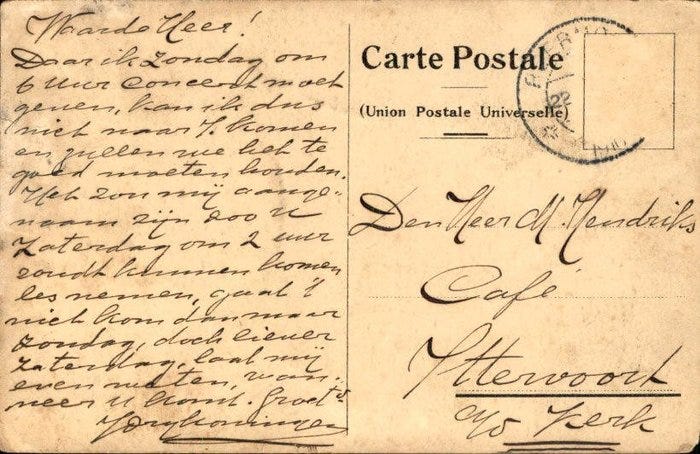 Waarde Heer!
Daar ik Zondag om
6 Uur Concert moet
geven, kan ik dus
niet naar I. komen
en zullen we het te
goed moeten houden.
Het zou mij aange-
naam zijn zoo U
Zaterdag om 2 uur
zoudt kunnen komen
les nemen, gaat 't
niet kom dan maar
Zondag, doch liever
Zaterdag, laat mij
even weten, wan-
neer U komt. Groets
Carte Postale
(Union Postale Universelle)
ROERMO
22
Den Heer M. Hendriks
Café
Ittervoort
a/d Kerk